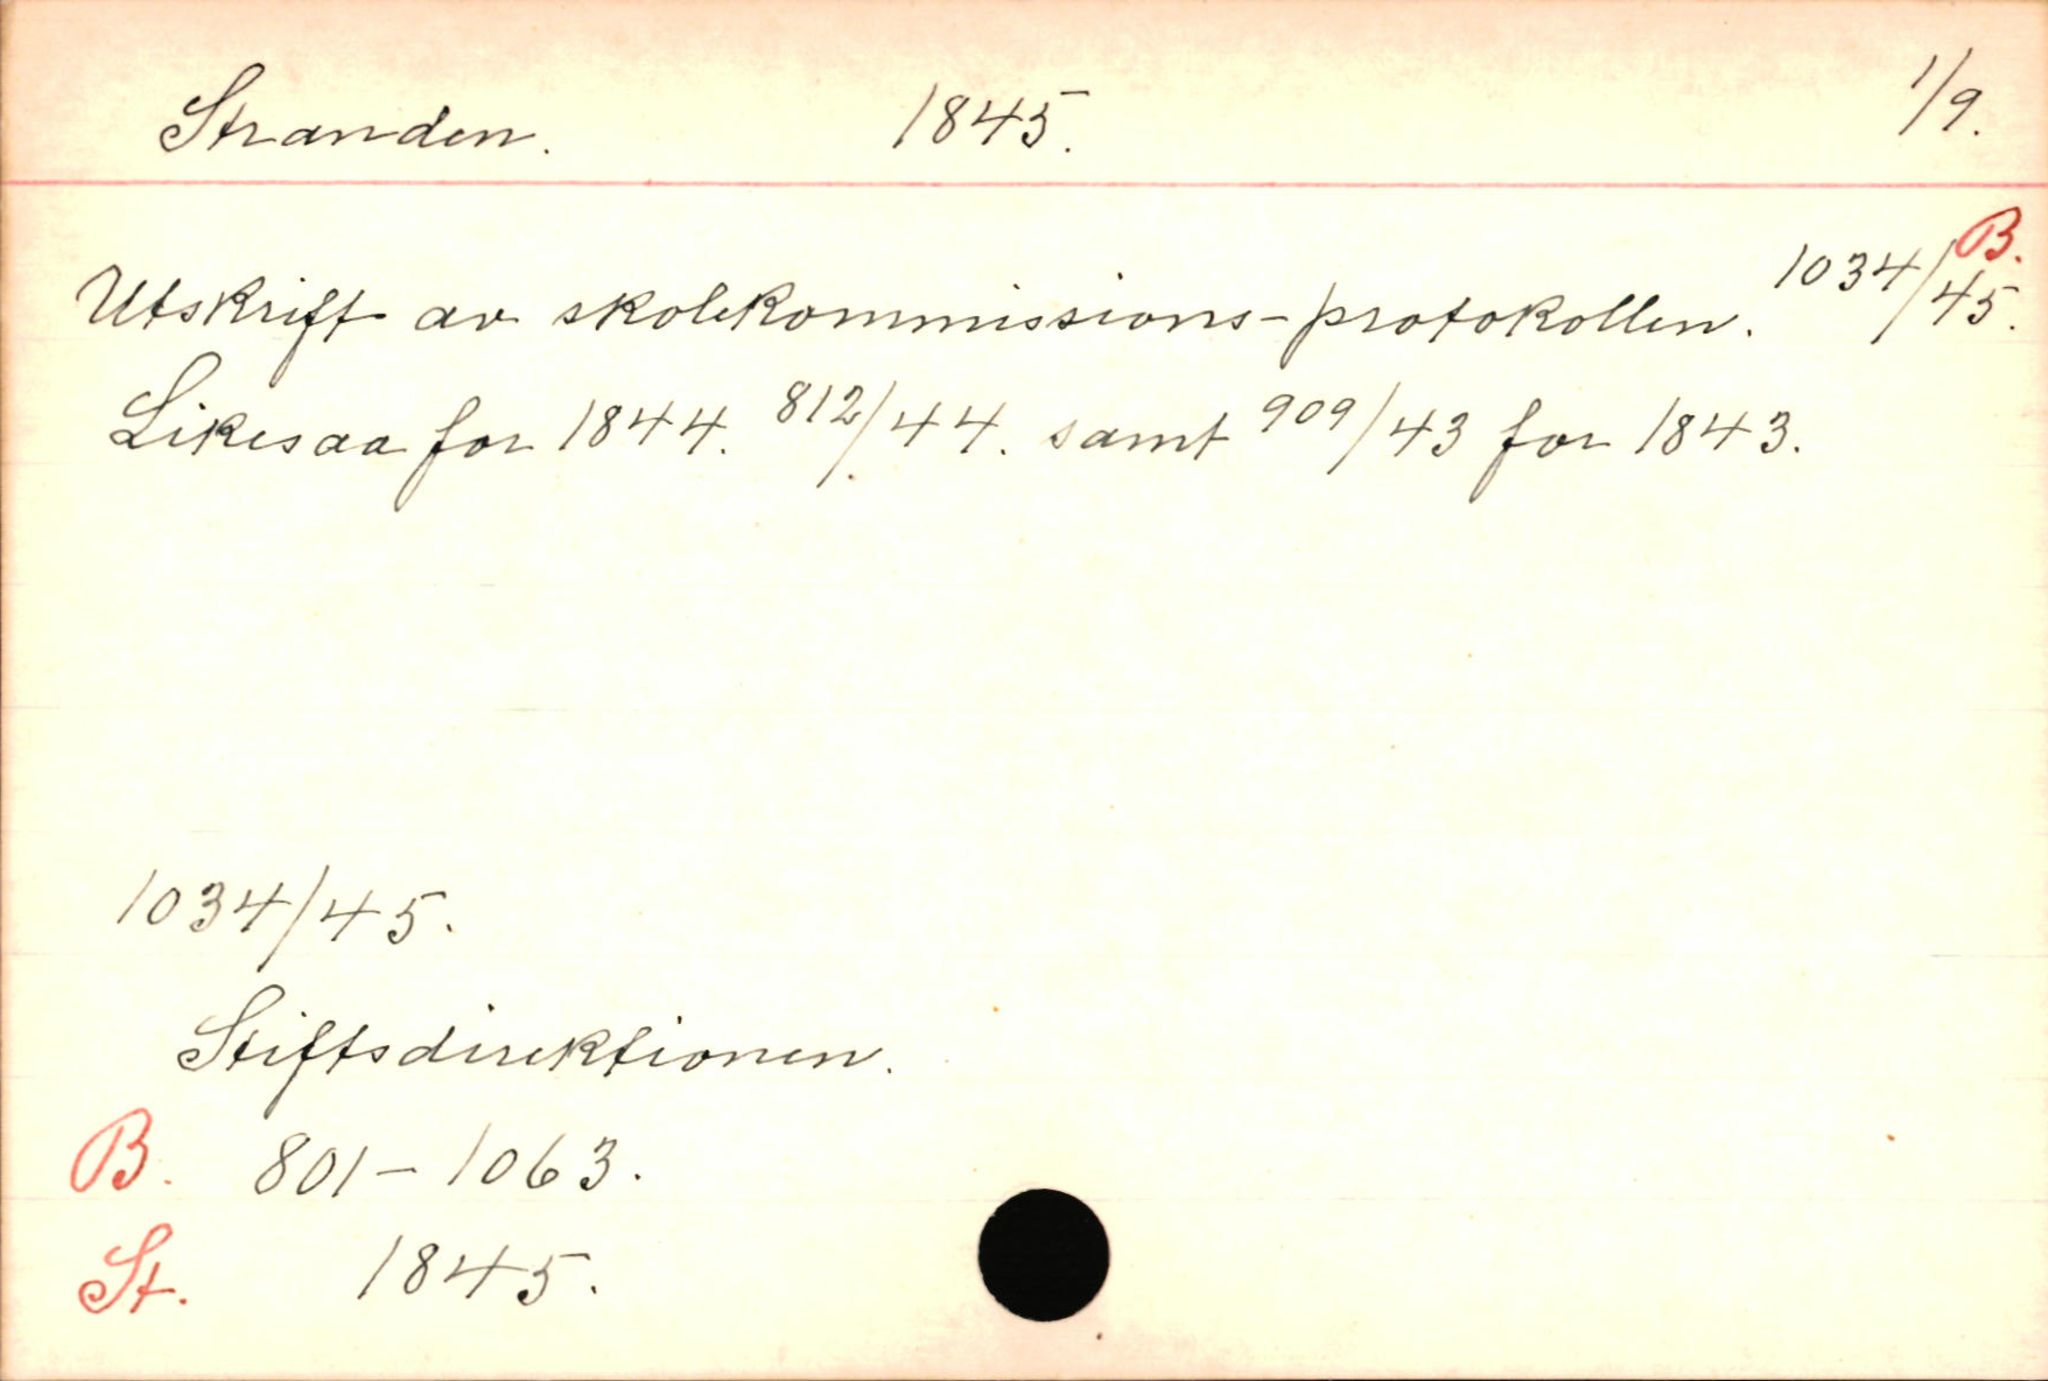 Stranden. 1845. 1/9.
B.
Utskrift av skolekommissions-protokollen. 1034/45.
Likesaa for 1844. 812/44. samt 909/43 for 1843.
1034/45.
Stiftsdirektionen.
B. 801-1063.
St. 1845.